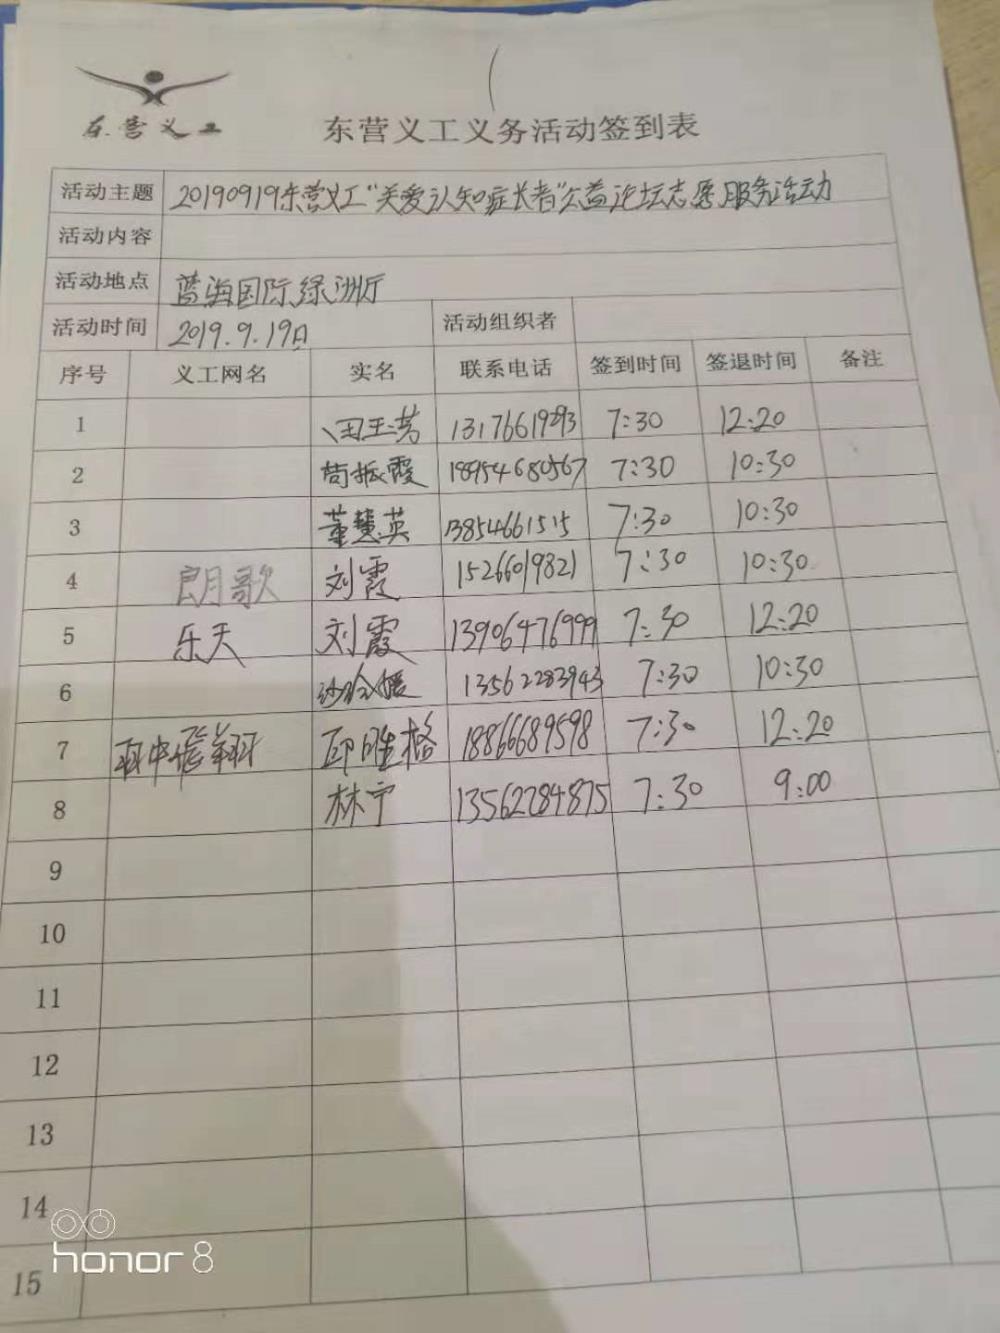 东营义工
东营义工义务活动签到表
活动主题 20190919东营义工“关爱认知症长者”公益论坛志愿服务活动
活动内容
活动地点 蓝海国际绿洲厅
活动时间 2019.9.19日 活动组织者
序号 义工网名 实名 联系电话 签到时间 签退时间 备注
1 田玉芳 7:30 12:20
2 苟振霞 18954680567 7:30 10:30
3 董慧英 13854661515 7:30 10:30
4 朗歌 刘霞 15266019821 7:30 10:30
5 乐天 刘霞 13906476999 7:30 12:20
6 13562283943 7:30 10:30
7 雨中飞翔 18866689598 7:30 12:20
8 林宁 13562784875 7:30 9:00
9
10
11
12
13
14
15
honor 8